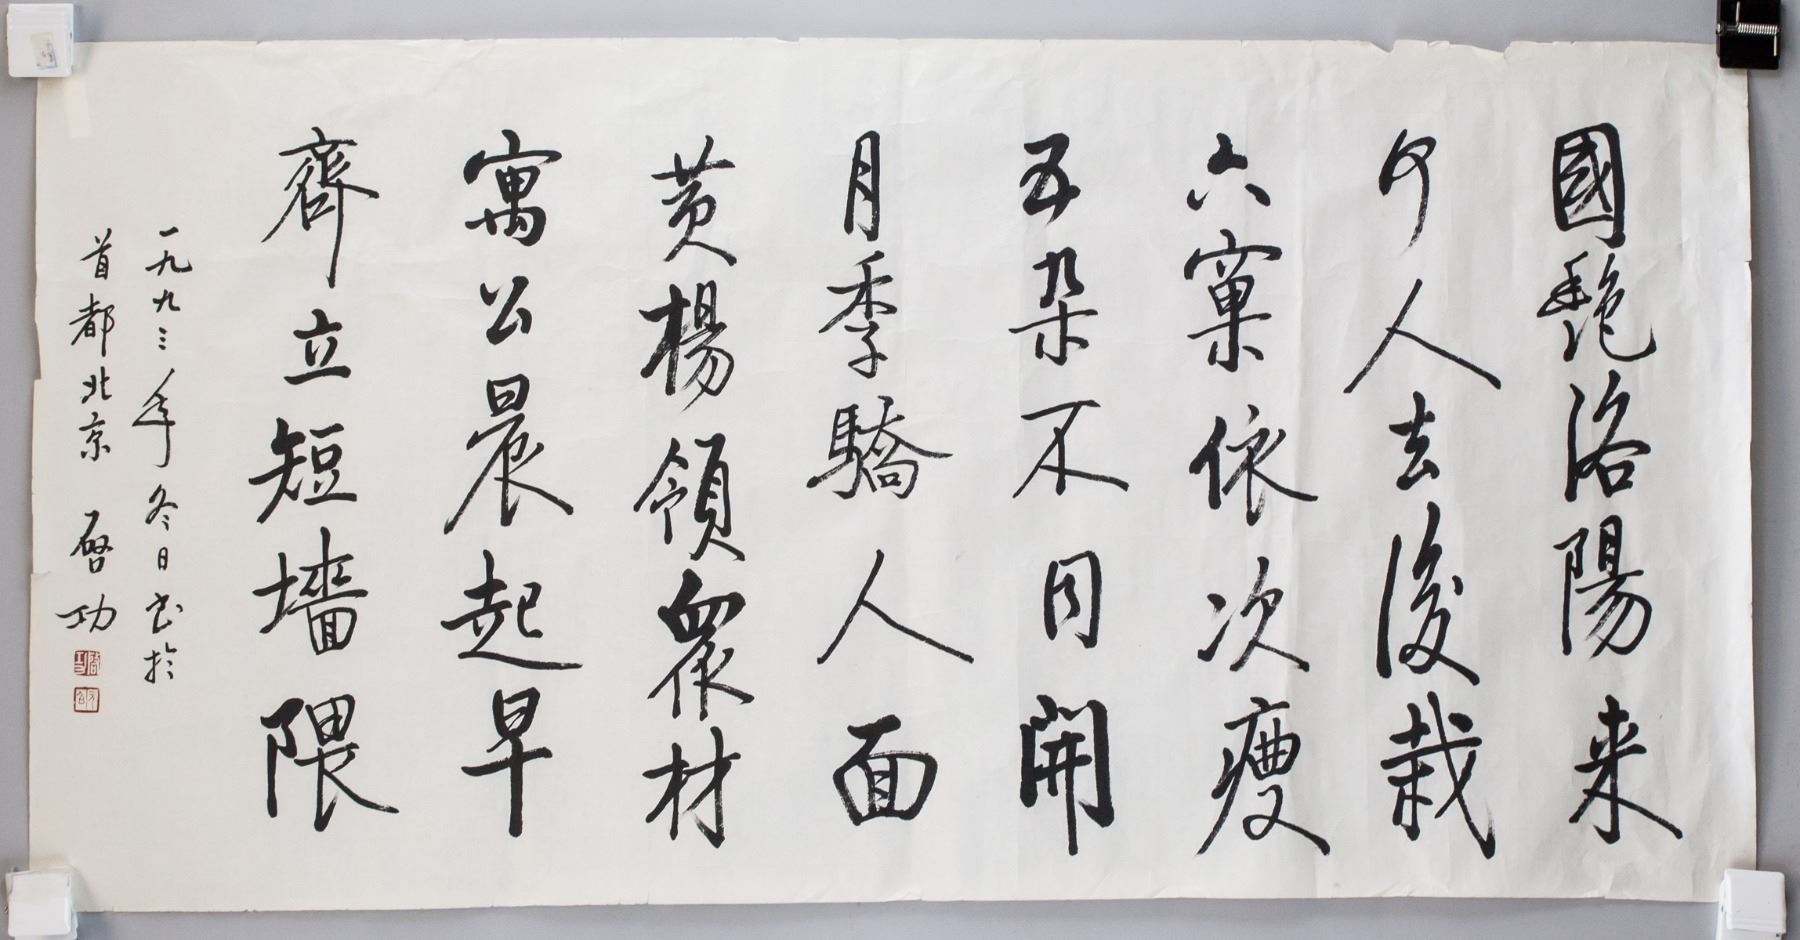 國艷洛陽来
何人去後栽
六窠依次瘦
五朶不同開
月季驕人面
黄楊領衆材
寓公晨起早
齊立短墻隈
一九九三年冬日书於
首都北京 啓功